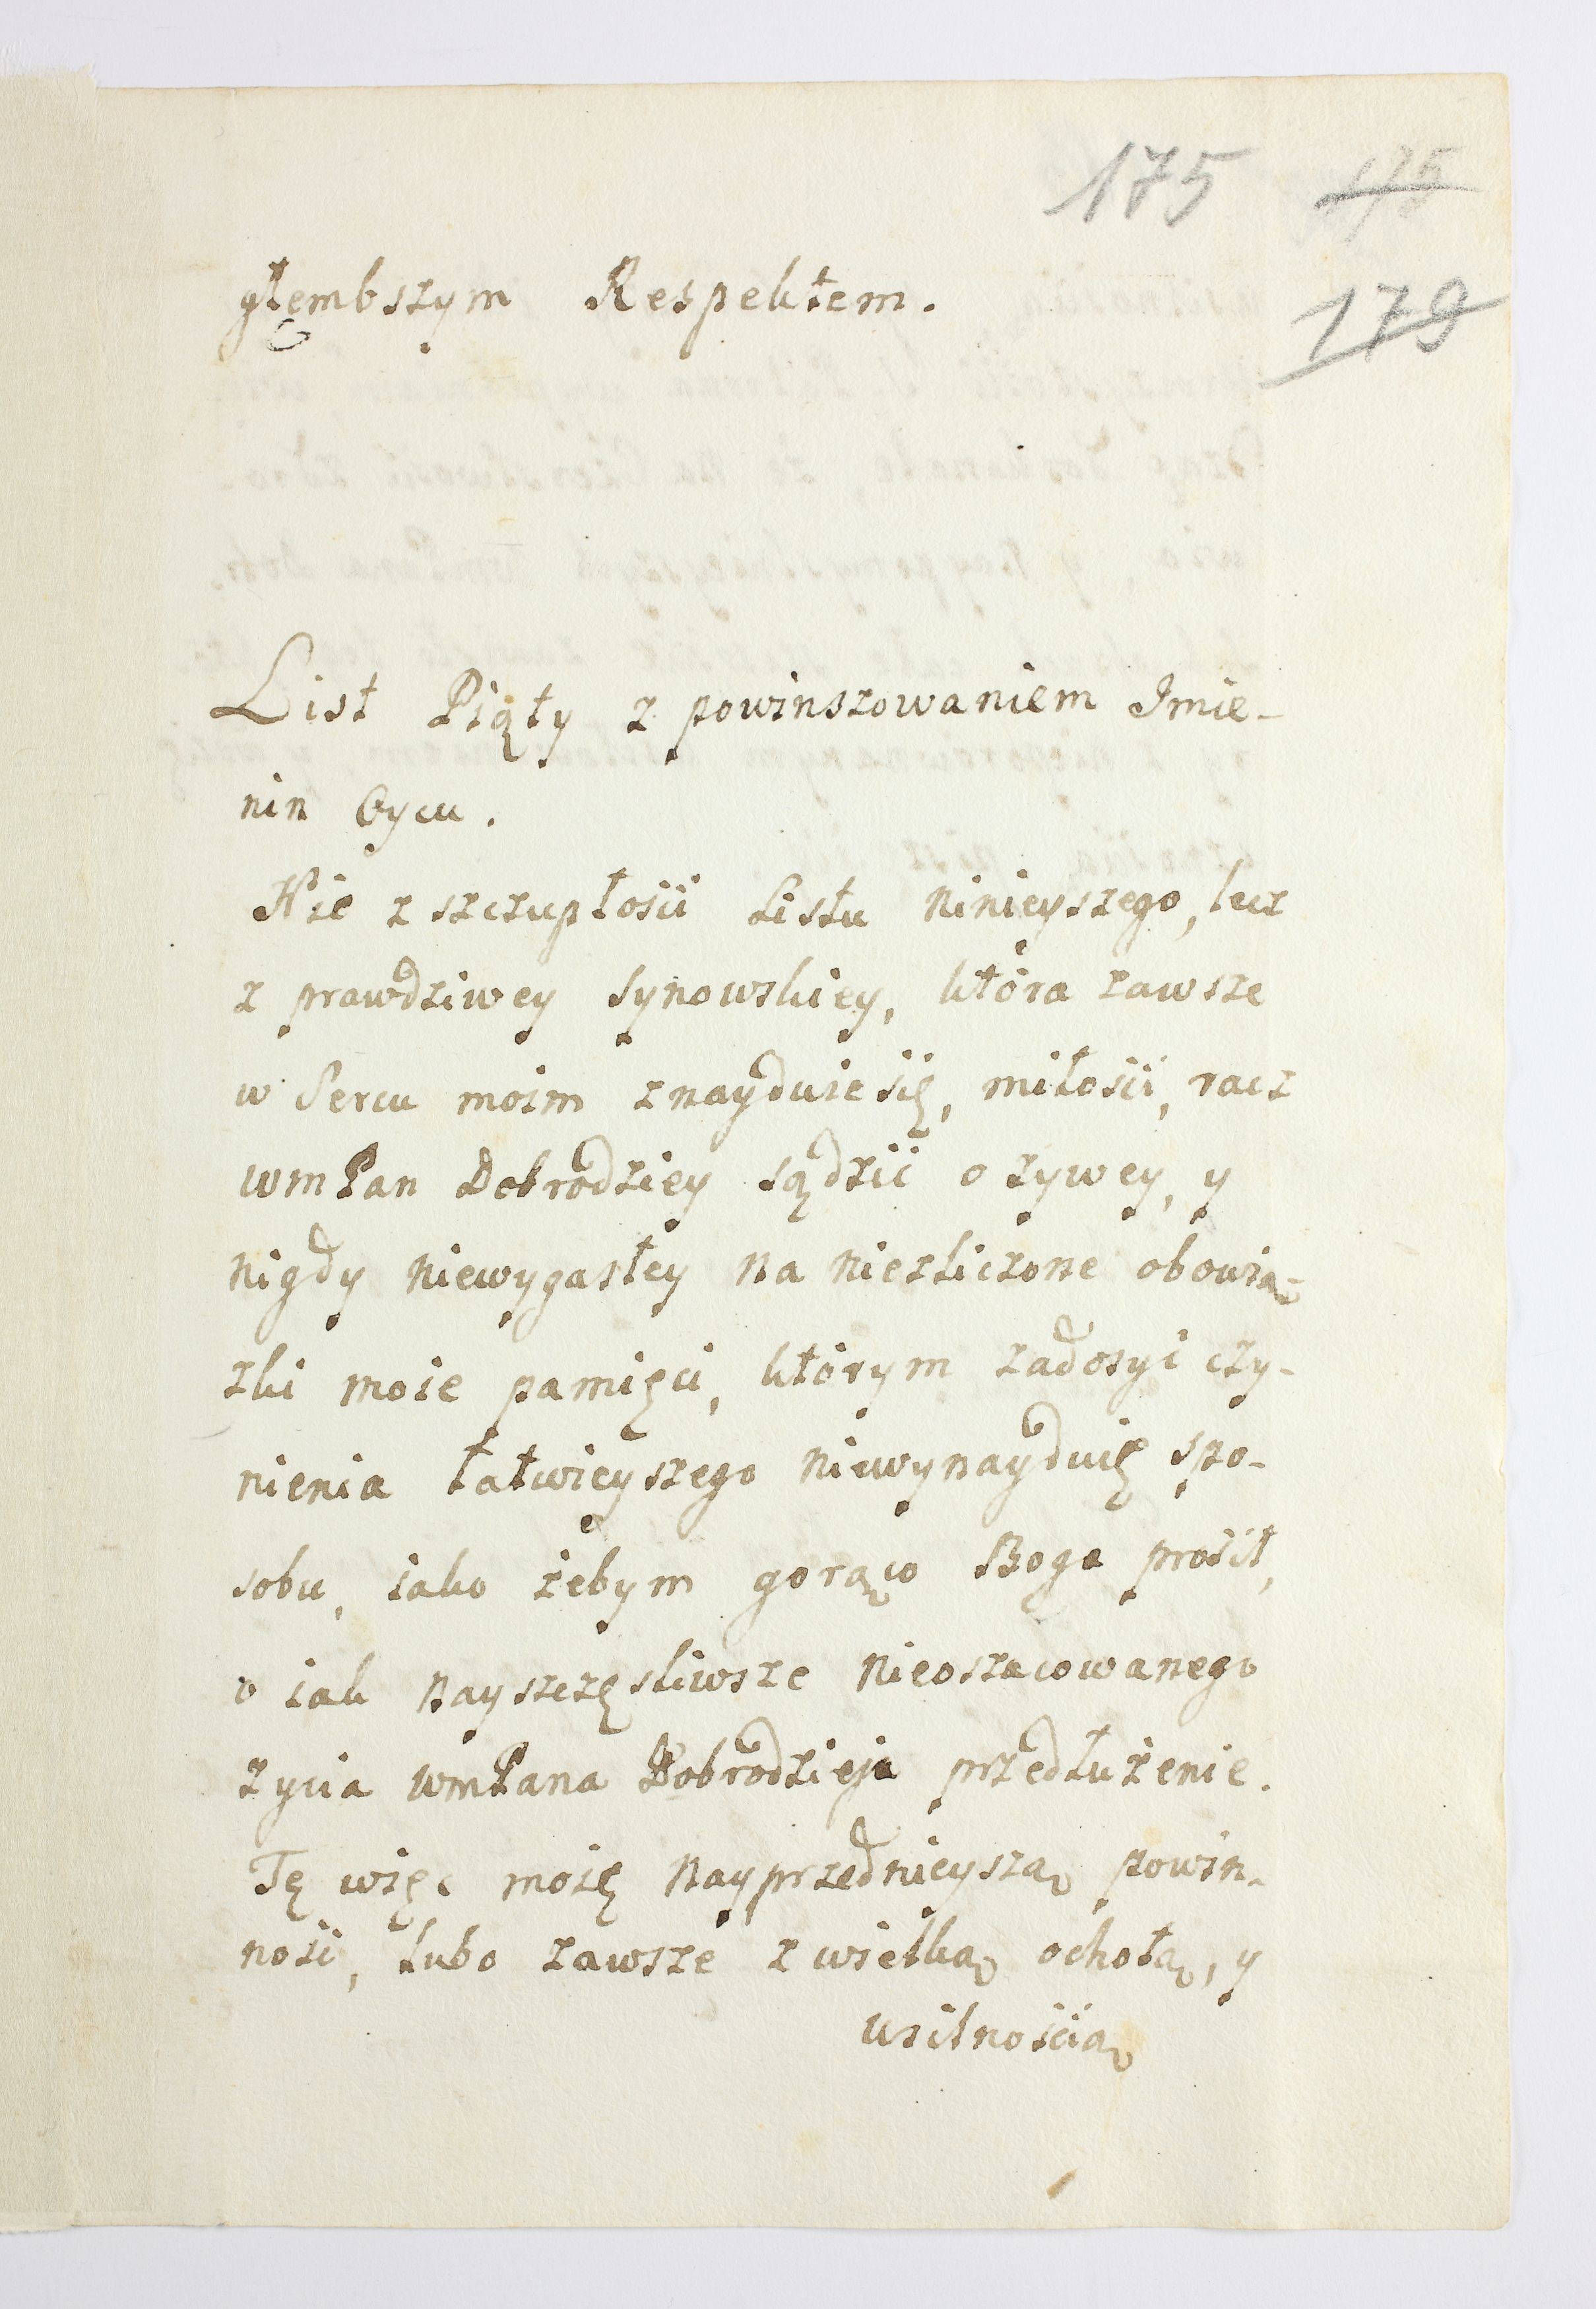 175 175
179
głembszym Respektem.
List Piąty z powinszowaniem Imie-
nin Oycu.
Nie z szczupłości Listu ninieyszego, lecz
z prawdziwey Synowskiey, która zawsze
w Sercu moim znayduie się, miłości, racz
wmPan Dobrodziey sądzić o zywey, y
nigdy niewygasłey na niezliczone obowią-
zki moie pamięci, którym zadosyć czy-
nienia łatwieyszego niewynayduię spo-
sobu, iako żebym gorąco Boga prosił,
o iak nayszczęsliwsze nieoszacowanego
zycia wmPana Dobrodzieja przedłużenie.
Tę więc moię nayprzednieyszą powin-
ność, lubo zawsze z wielką ochotą, y
usilnością